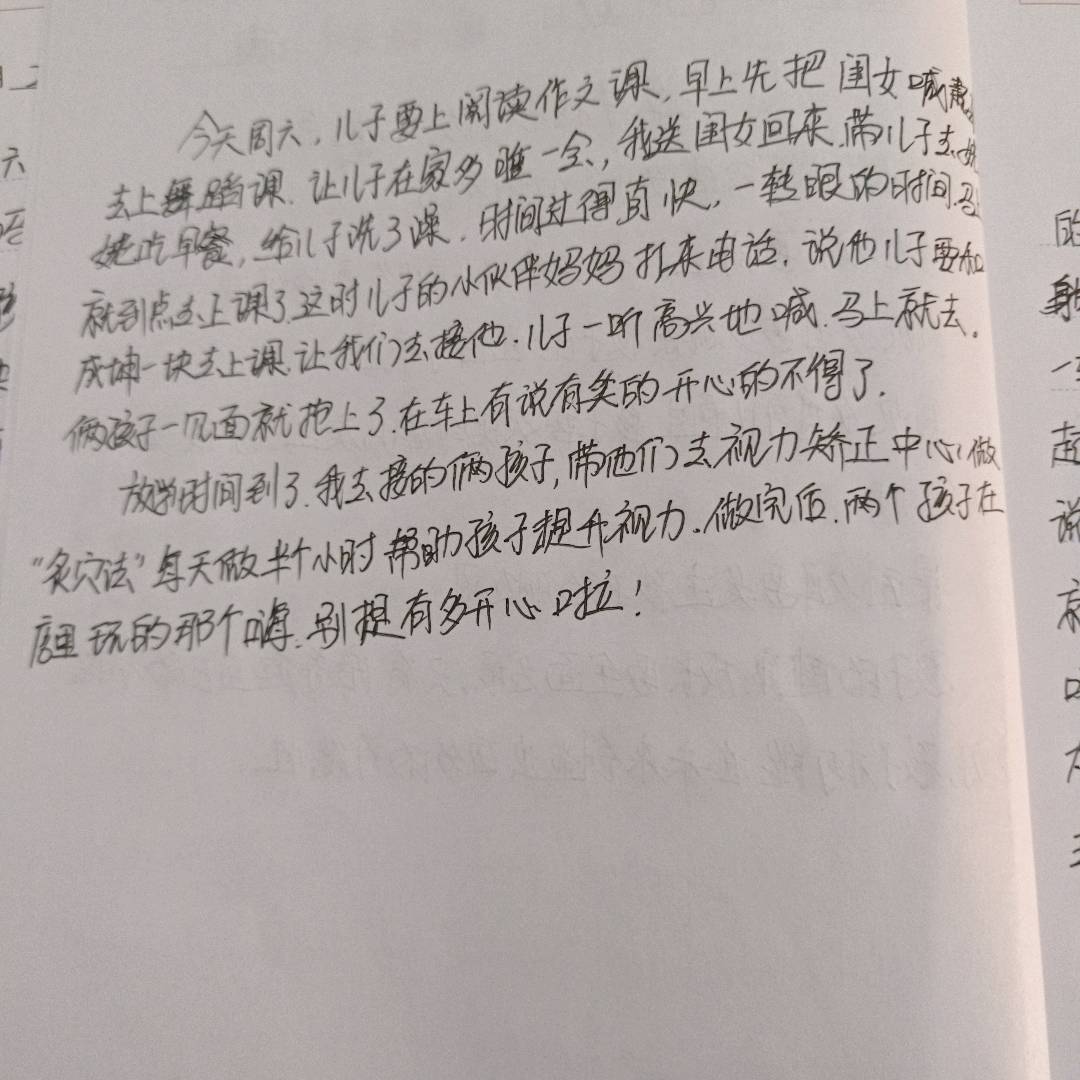 今天周六，儿子要上阅读作文课，早上先把闺女喊
去上舞蹈课.让儿子在家多睡一会，我送闺女回来.带儿子去
姥吃早餐，给儿子洗了澡.时间过得真快，一转眼的时间.马
就到点去上课了.这时儿子的小伙伴妈妈打来电话.说他儿子要和
成坤一块去上课.让我们去接他.儿子一听高兴地喊.马上就去.
俩孩子一见面就抱上了.在车上有说有笑的开心的不得了.
放学时间到了.我去接的俩孩子，带他们去视力矫正中心做
“炙穴法”每天做半个小时帮助孩子提升视力.做完后.两个孩子在
店里玩的那个嗨.别提有多开心啦！
六
的
身
一
起
说